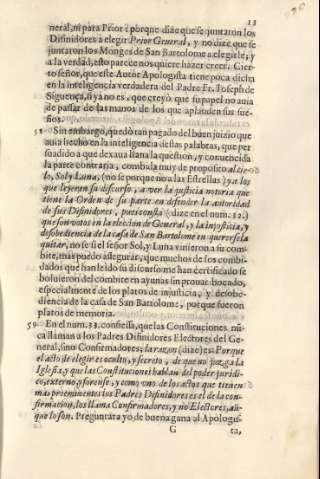 13
neral, ni para Prior: porque dize que se juntaron los
Difinidores à elegir Prior General, y no dize que se
juntaron los Monges de San Bartolome a elegirle; y
a la verdad, esto parece nos quiere hazer creer. Cier-
to señor, que este Autor Apologista tiene poca dicha
en la inteligencia verdadera del Padre Fr. Ioseph de
Siguença, si ya no es, que creyò que su papel no auia
de passar de las manos de los que aplauden sus sue-
ños.
Sin embargo, quedò tan pagado del buen juizio que
auia hecho en la inteligencia destas palabras, que per
suadido a que dexaua llana la question, y conuencida
la parte contraria, combida muy de proposito al Cie-
lo, Sol, y Luna, (no se porque no a las Estrellas) y a los
que leyeren su discurso, a ver la justicia notoria que
tiene la Orden de su parte en defender la autoridad
de sus Difinidores, pues consta (dize en el num. 12.)
que son votos en la eleccion de General, y la injusticia, y
desobediencia de la casa de San Bartolome en querersela
quitar, no se si el señor Sol, y Luna vinieron a su com-
bite, mas puedo assegurar, que muchos de los combi-
dados que han leido su discurso me han certificado se
boluieron del combite en ayunas sin prouar bocado,
especialmente de los platos de injusticia, y desobe-
diencia de la casa de San Bartolome, porque fueron
platos de memoria.
En el num. 33. confiessa, que las Constituciones nũ-
ca llaman a los Padres Difinidores Electores del Ge-
neral, sino Confirmadores; la razon (dize) es: Porque
el acto de elegir es oculto, y secreto, de que no juzga la
Iglesia, y que las Constituciones hablan del poder juridi-
co, externo, y forense, y como vno de los actos que tienen
mas preeminentes los Padres Difinidores es el de la con-
firmacion, los llama Confirmadores, y no Electores, aũ-
que lo son. Preguntara yo de buena gana al Apologis-
G ta,